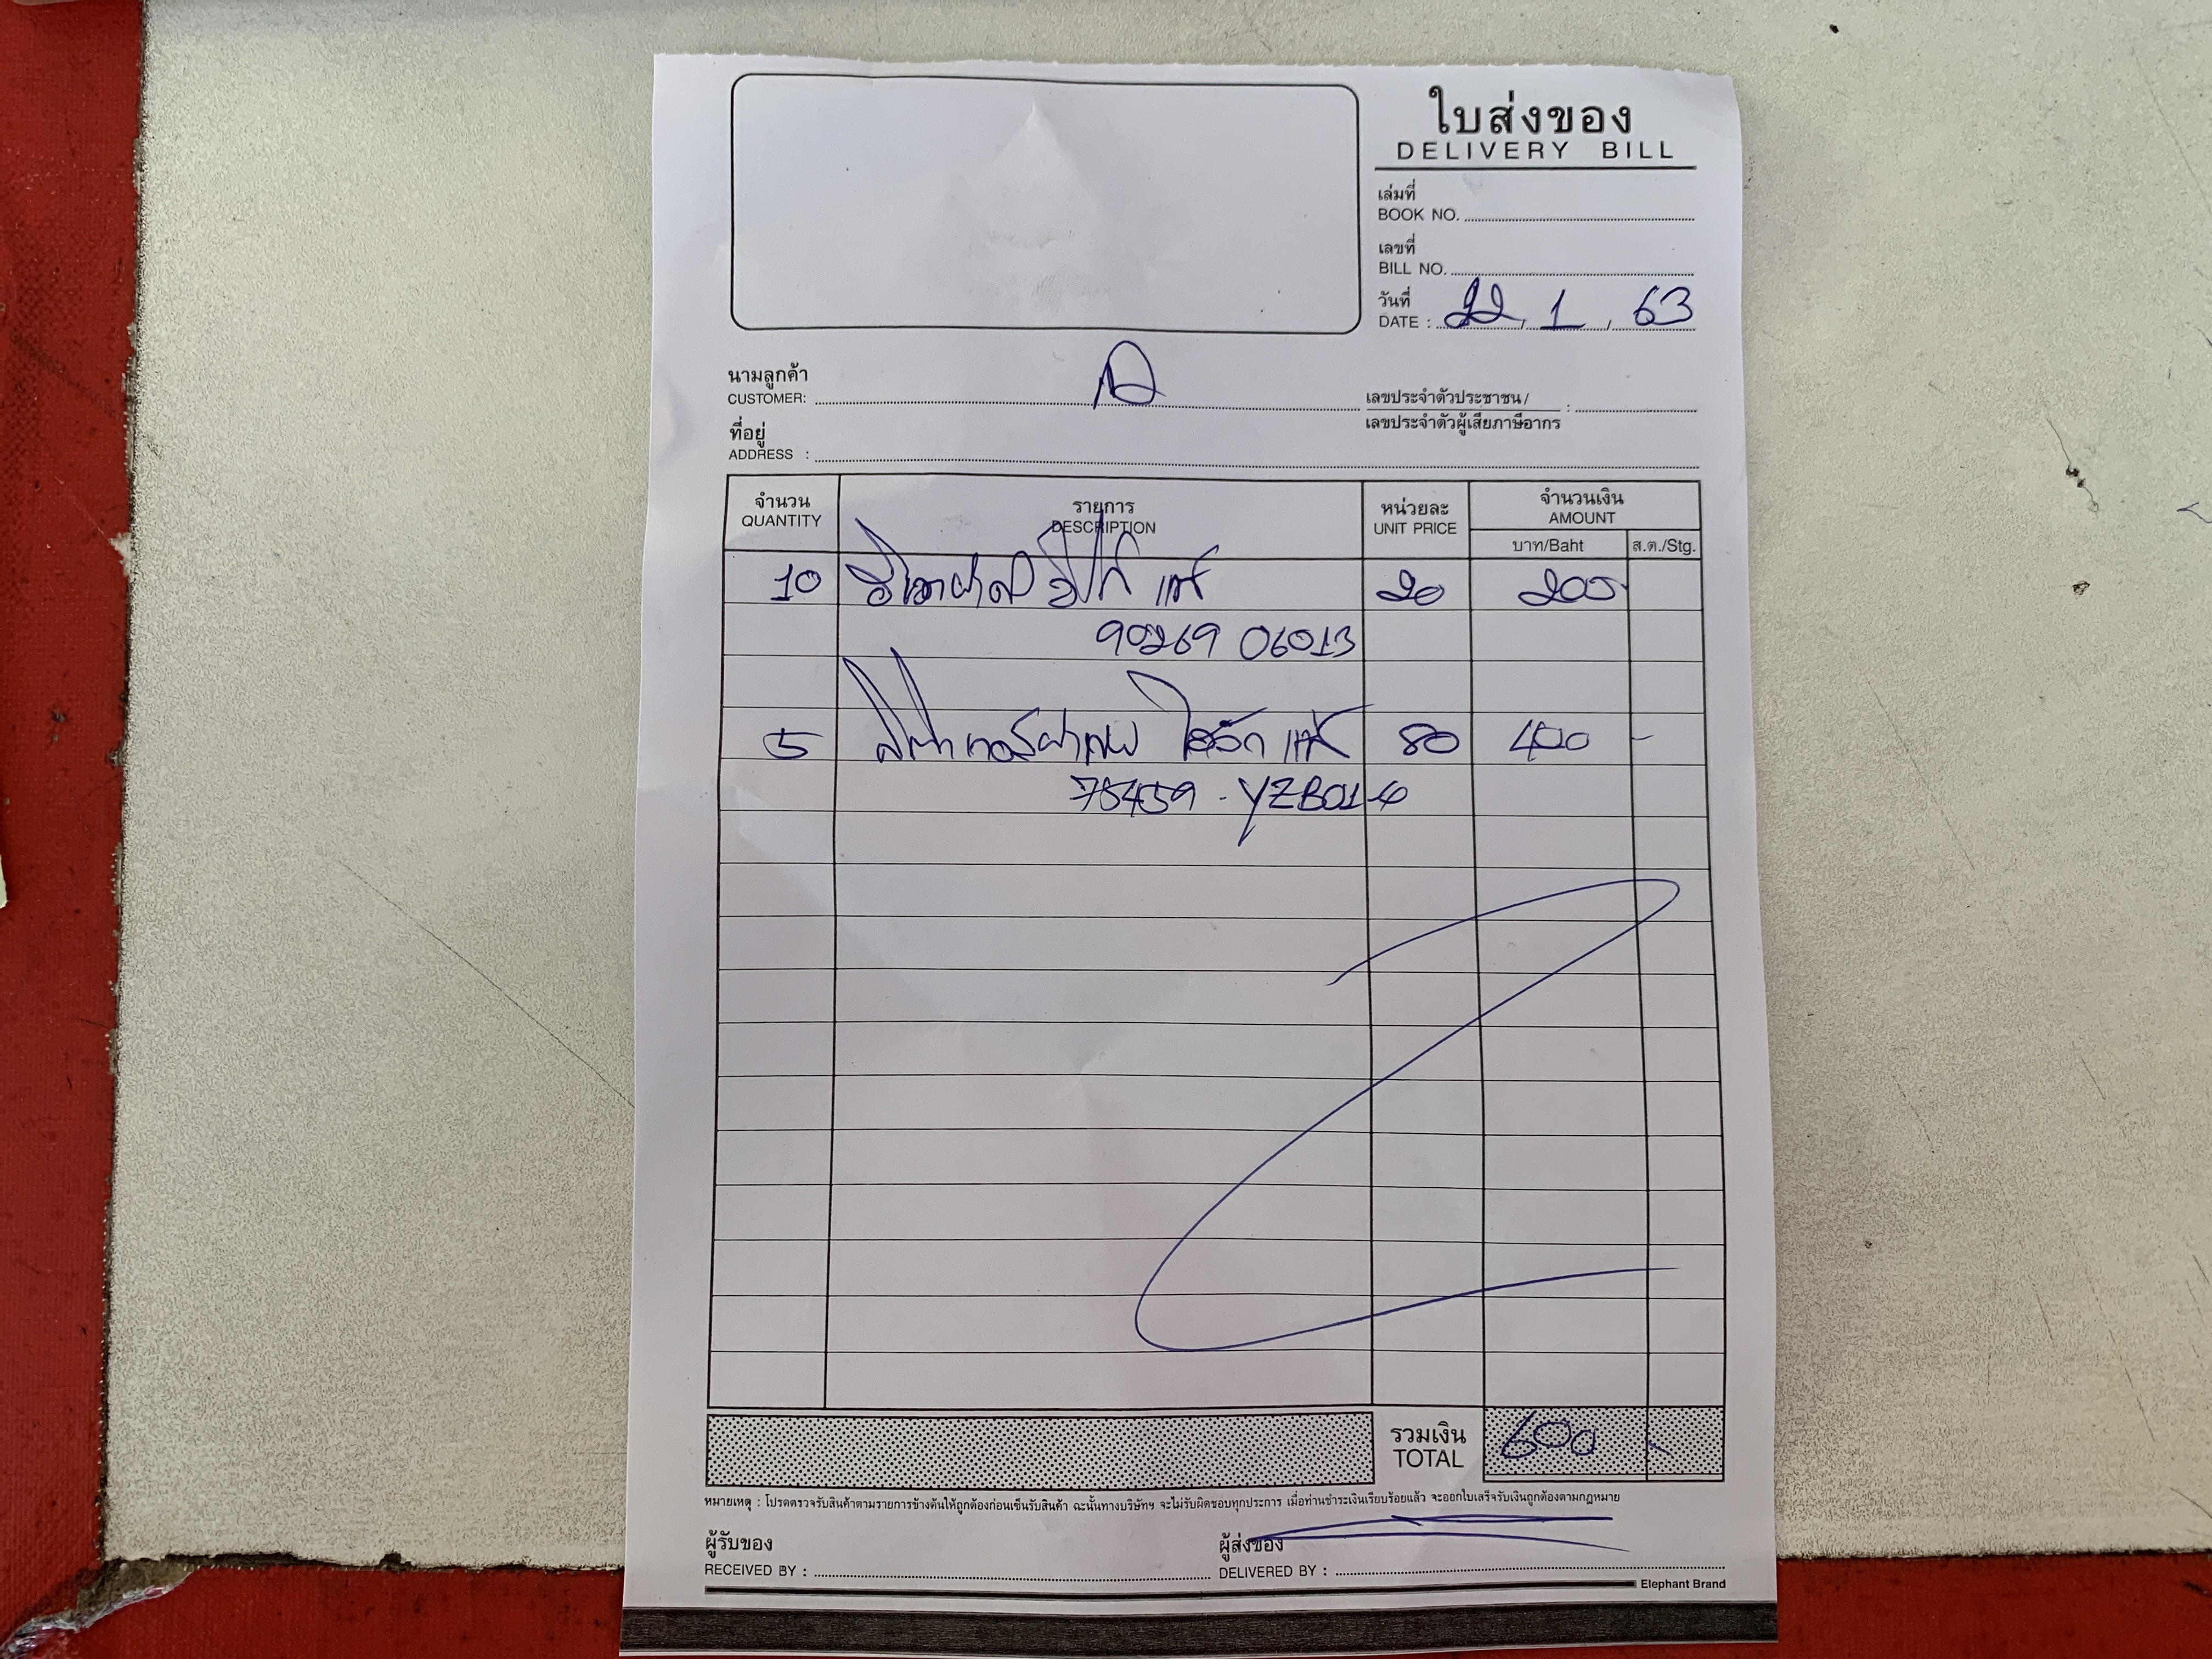 ใบส่งของ
DELIVERY BILL
เล่มที่
BOOK NO.
เลขที่
BILL NO.
วันที่
DATE : 22, 1, 63
นามลูกค้า
CUSTOMER:
เลขประจำตัวประชาชน /
เลขประจำตัวผู้เสียภาษีอากร :
ที่อยู่
ADDRESS :
จำนวน รายการ หน่วยละ จำนวนเงิน
QUANTITY DESCRIPTION UNIT PRICE AMOUNT
บาท/Baht ส.ต./Stg.
10 แท้ 20 200
90269 06013
5 แท้ 80 400 -
75459 - YZB01
รวมเงิน 600 -
TOTAL
หมายเหตุ : โปรดตรวจรับสินค้าตามรายการข้างต้นให้ถูกต้องก่อนเซ็นรับสินค้า ฉะนั้นทางบริษัทฯ จะไม่รับผิดชอบทุกประการ เมื่อท่านชำระเงินเรียบร้อยแล้ว จะออกใบเสร็จรับเงินถูกต้องตามกฎหมาย
ผู้รับของ ผู้ส่งของ
RECEIVED BY : DELIVERED BY :
Elephant Brand